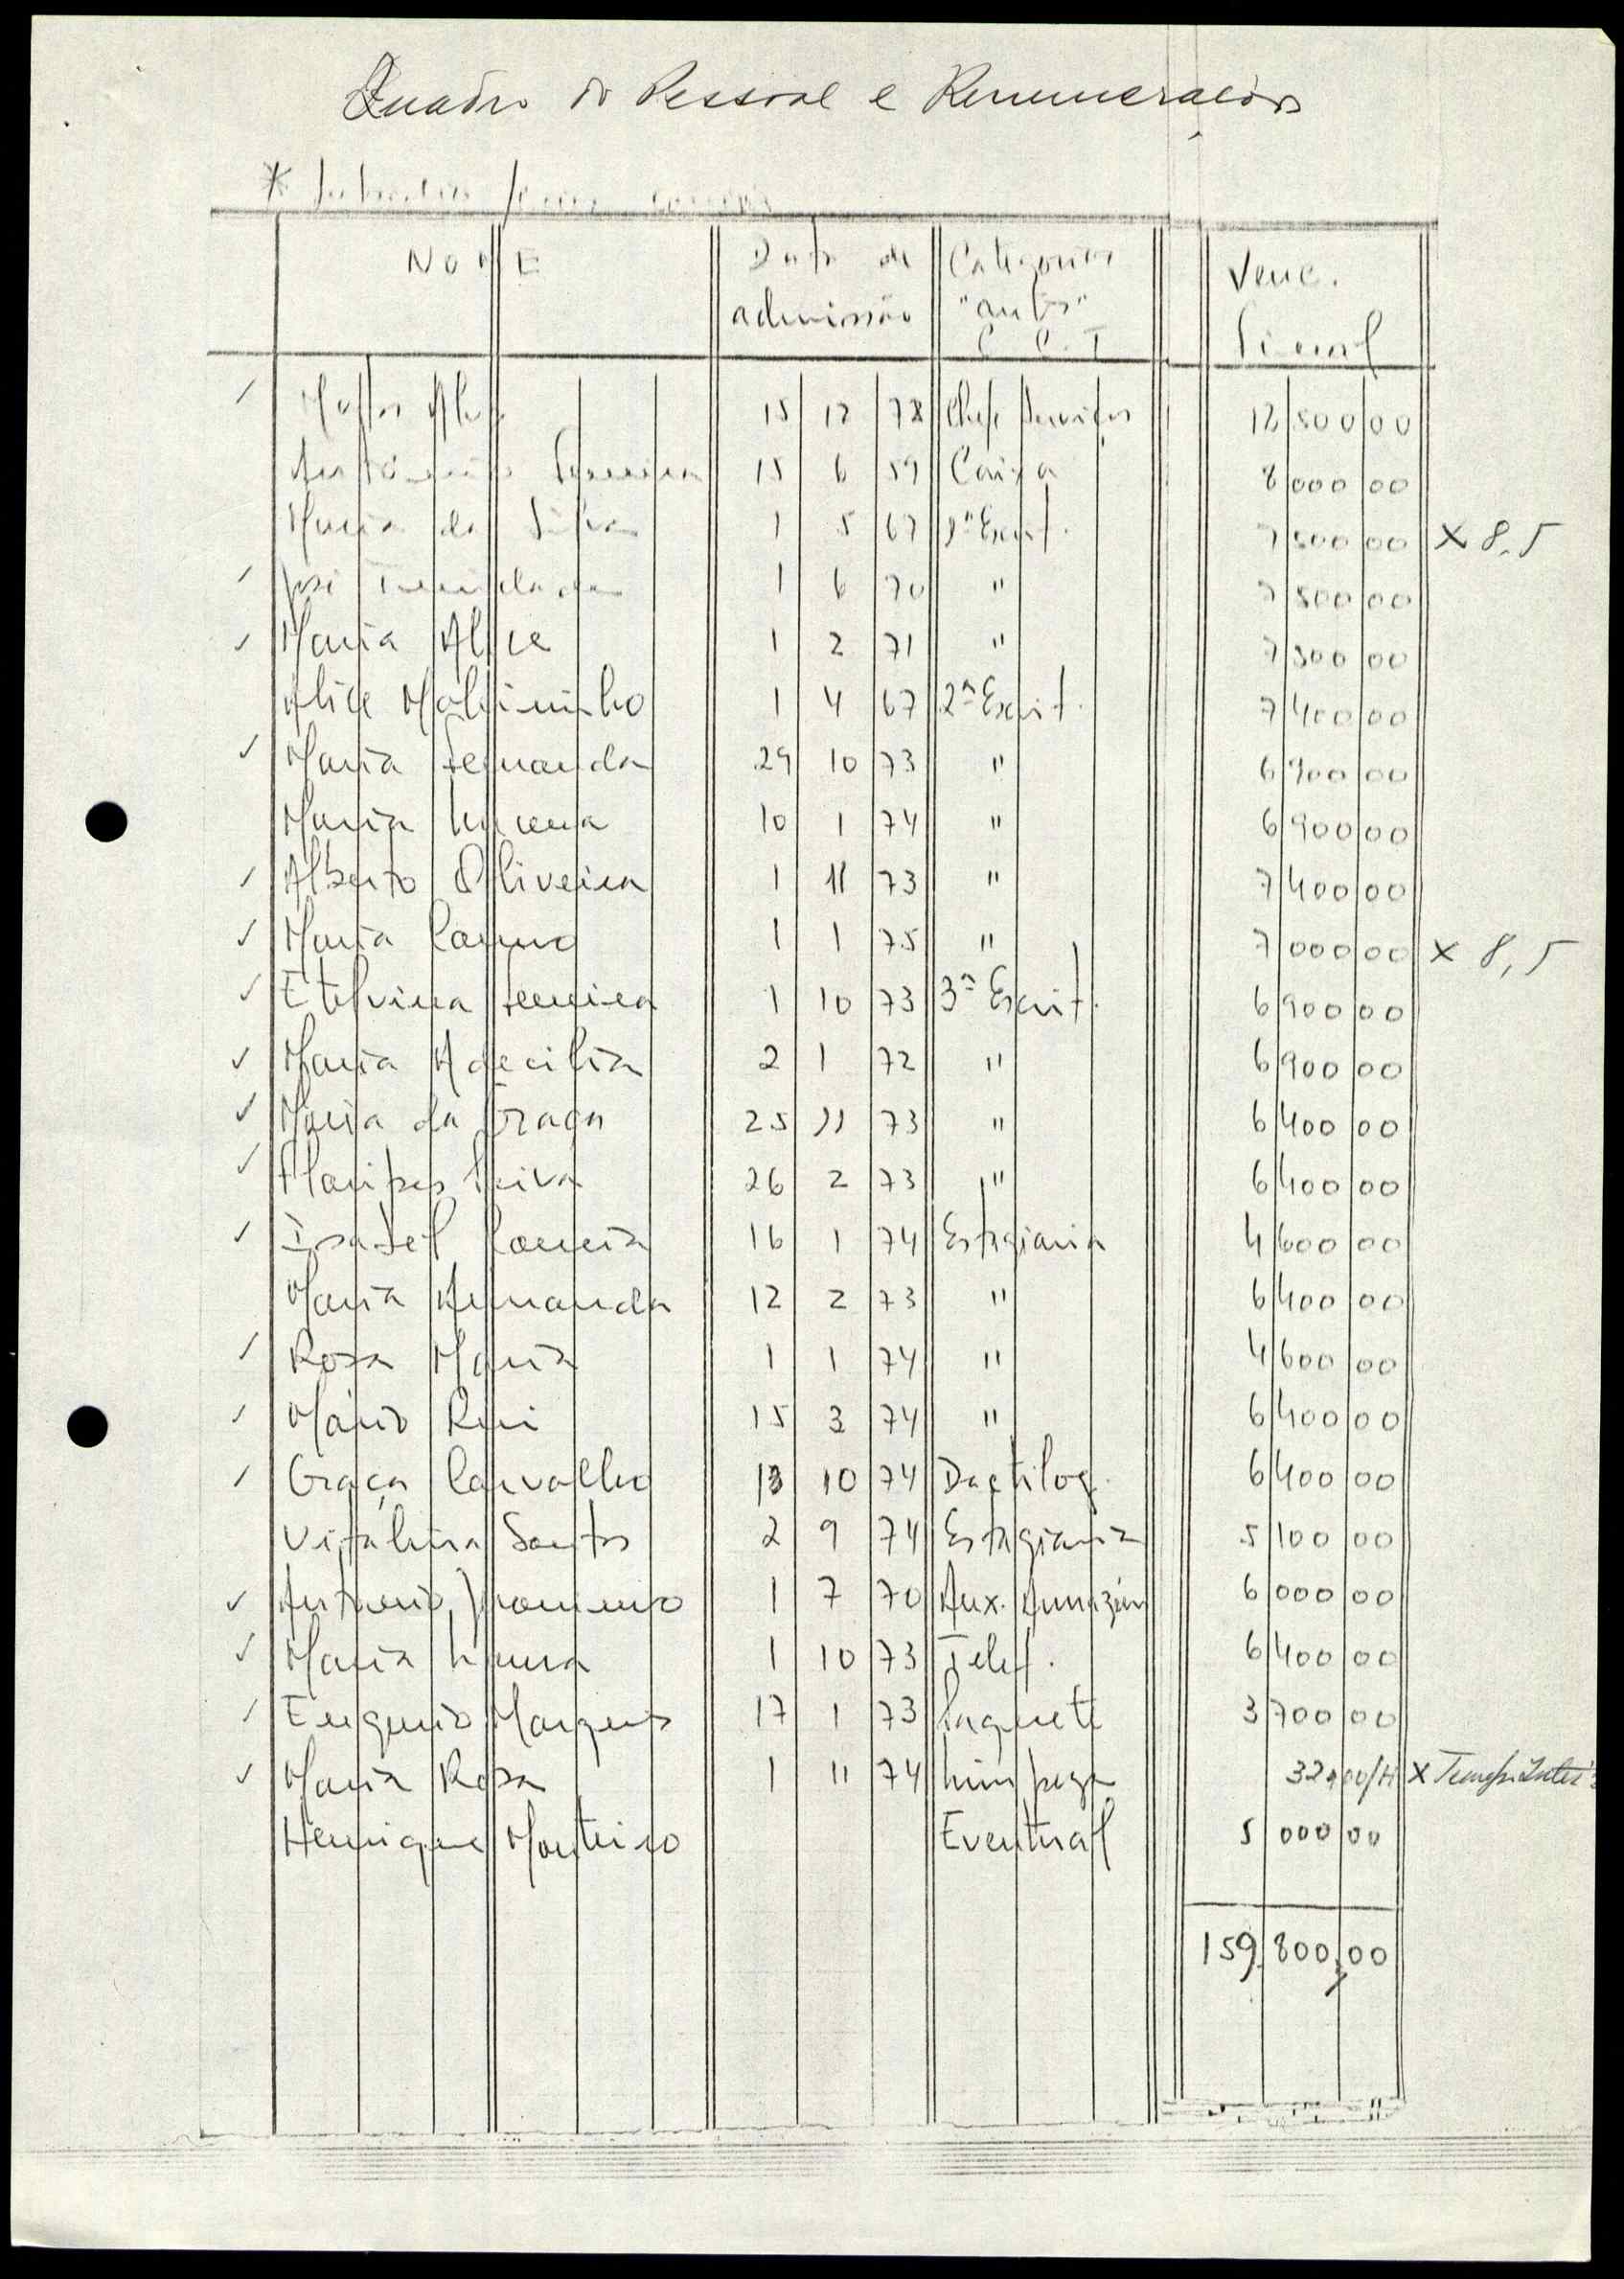 Quadro do Pessoal e Remunerações
NOME Data de admissão Categorias "antes" C.C.T Venc.
✓ 15 12 Chefe Serviços 12 500 00
Ferreira 15 6 59 Caixa 8 000 00
Maria da Silva 1 5 67 1º Escrit. 7 500 00 x 8,5
✓ José 1 6 70 " 7 500 00
✓ Maria Alice 1 2 71 " 7 500 00
Alice 1 4 67 2ª Escrit. 7 400 00
✓ Maria Fernanda 29 10 73 " 6 900 00
Maria 10 1 74 " 6 900 00
✓ Alberto Oliveira 1 11 73 " 7 400 00
✓ Maria 1 1 75 " 7 000 00 x 8,5
✓ Etelvina Ferreira 1 10 73 3ª Escrit. 6 900 00
✓ Maria Adecilia 2 1 72 " 6 900 00
✓ Maria da Graça 25 11 73 " 6 400 00
✓ 26 2 73 " 6 400 00
✓ Isabel Correia 16 1 74 Estagiaria 4 600 00
Maria Armanda 12 2 73 " 6 400 00
✓ Rosa Maria 1 1 74 " 4 600 00
✓ Mário Rui 15 3 74 " 6 400 00
✓ Graça Carvalho 13 10 74 Dactilog. 6 400 00
Vitalina Santos 2 9 74 Estagiaria 5 100 00
✓ António 1 7 70 Aux. Armazém 6 000 00
✓ Maria 1 10 73 Telef. 6 400 00
✓ Eugenio Marques 17 1 73 Paquete 3 700 00
✓ Maria Rosa 1 11 74 Limpeza 32,00/H x
Henrique Monteiro Eventual 5 000 00
159.800,00